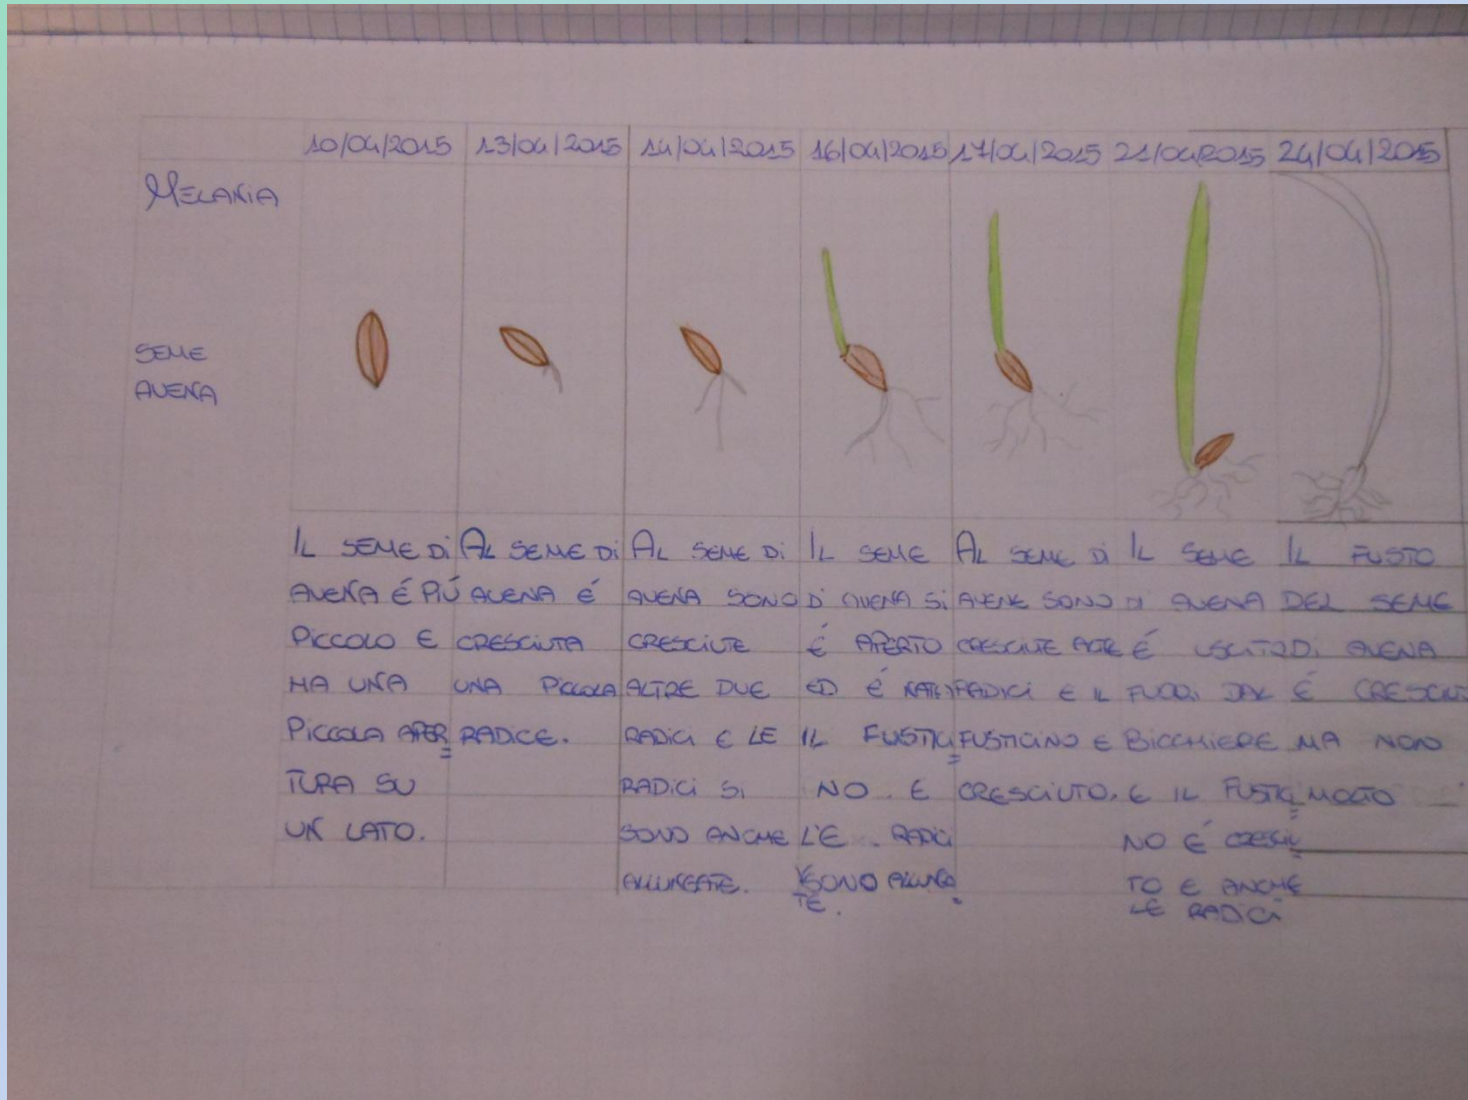 10/04/2015
13/04/2015
14/04/2015
16/04/2015
17/04/2015
21/04/2015
24/04/2015
MELANIA
SEME
AVENA
IL SEME DI
AVENA É PIÚ
PICCOLO E
HA UNA
PICCOLA APER=
TURA SU
UN LATO.
AL SEME DI
AVENA É
CRESCIUTA
UNA PICCOLA
RADICE.
AL SEME DI
AVENA SONO
CRESCIUTE
ALTRE DUE
RADICI E LE
RADICI SI
SONO ANCHE
ALLUNGATE.
IL SEME
DI AVENA SI
É APERTO
ED É NATO
IL FUSTICI=
NO. E
LE RADICI
SONO ALLUNGA=
TE.
AL SEME DI
AVENE SONO
CRESCIUTE ALTRE
RADICI E IL
FUSTICINO E
CRESCIUTO.
IL SEME
DI AVENA
É USCITO
FUORI DAL
BICCHIERE
E IL FUSTICI=
NO É CRESCIU=
TO E ANCHE
LE RADICI
IL FUSTO
DEL SEME
DI AVENA
É CRESCIUTO
MA NON
MOLTO